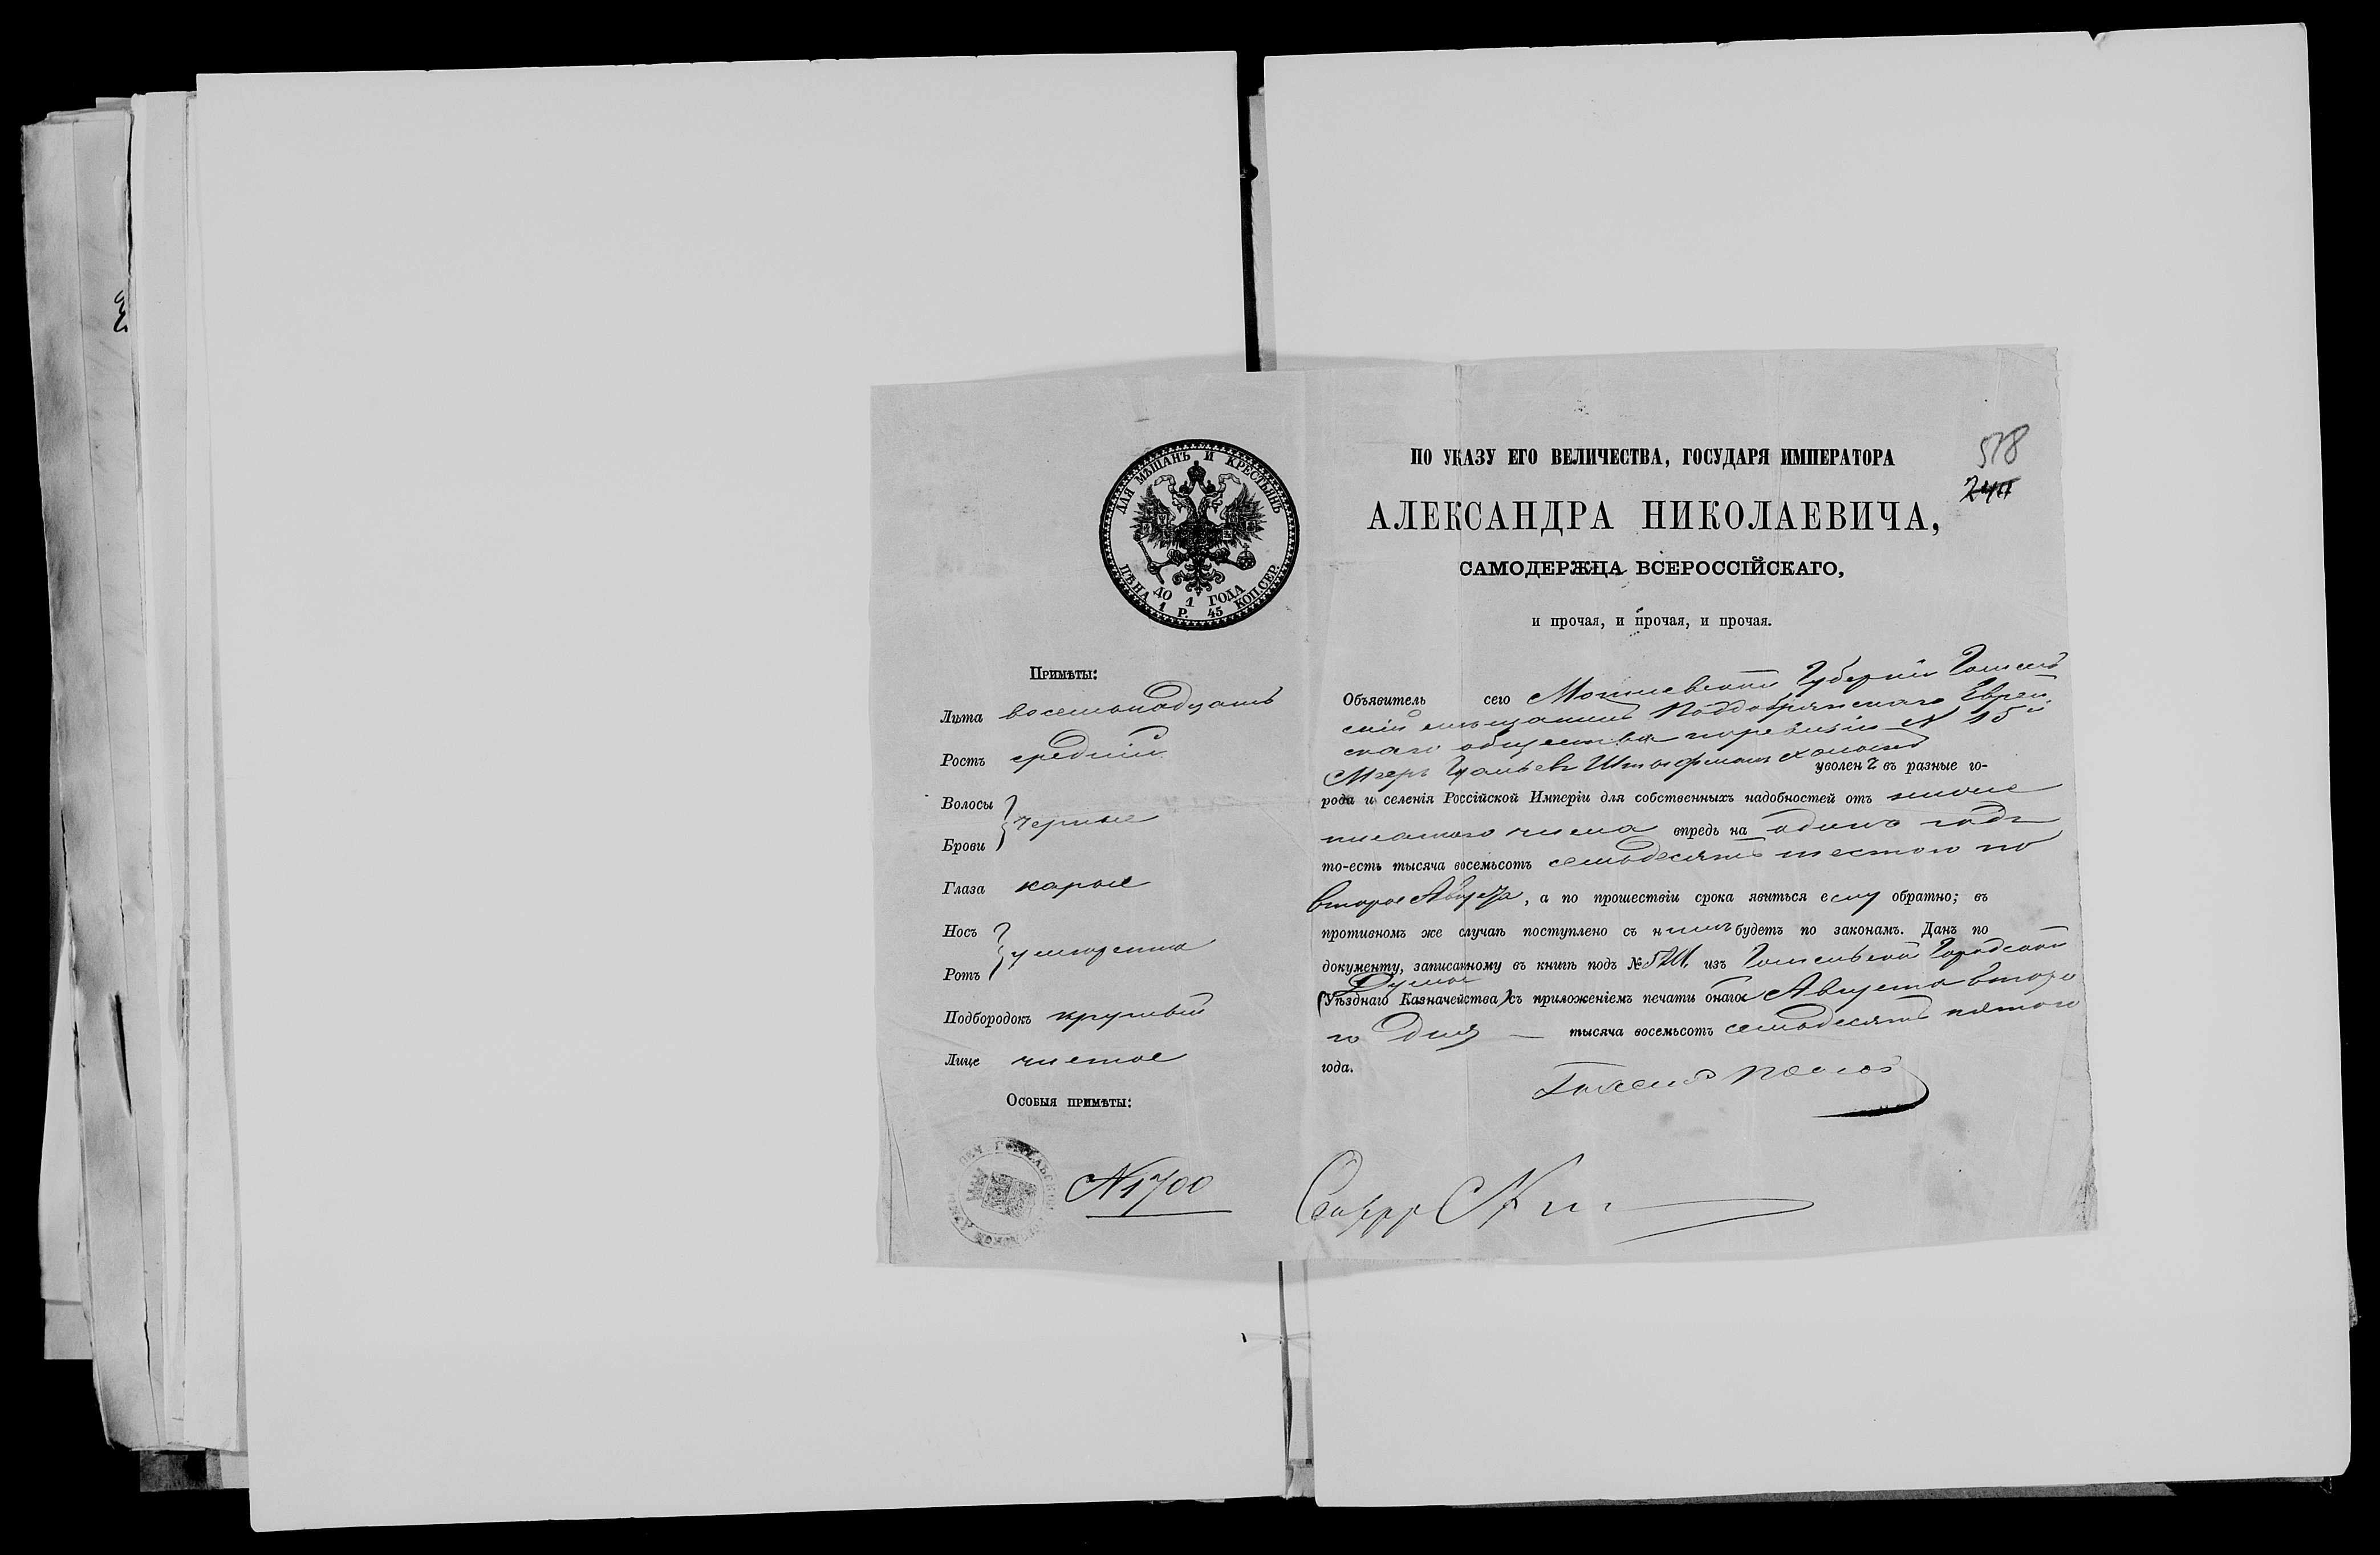 ДЛЯ МѢЩАНЪ И КРЕСТЬЯНЪ
ДО 1 ГОДА
ЦѢНА 1 Р. 45 КОП. СЕР.
Примѣты:
Лѣта восемнадцать
Ростъ средній
Волосы
черные
Брови
Глаза карые
Носъ
умѣренные
Ротъ
Подбородокъ круглый
Лице чистое
Особыя примѣты:
N 1700
518
ПО УКАЗУ ЕГО ВЕЛИЧЕСТВА, ГОСУДАРЯ ИМПЕРАТОРА
АЛЕКСАНДРА НИКОЛАЕВИЧА,
САМОДЕРЖЦА ВСЕРОССІЙСКАГО,
и прочая, и прочая, и прочая.
Объявитель сего Могилевской Губерніи Гомель
скій мѣщанинъ Поддобрянскаго Еврей
скаго общества по ревизіи N 15й
уволенъ въ разные го-
рода и селенія Россійской Имперіи для собственныхъ надобностей отъ ниже
писаннаго числа впредь на одинъ годъ
то-есть тысяча восемьсотъ семьдесятъ шестого по
второе Августа, а по прошествіи срока явиться ему обратно; въ
противномъ же случаѣ поступлено съ нимъ будетъ по законамъ. Данъ по
документу, записанному въ книгѣ подъ № изъ Гомельской Городской
Думы
(Уѣзднаго Казначейства) съ приложеніемъ печати онаго Августа второ
го дня — тысяча восемьсотъ семьдесятъ пятого
года.